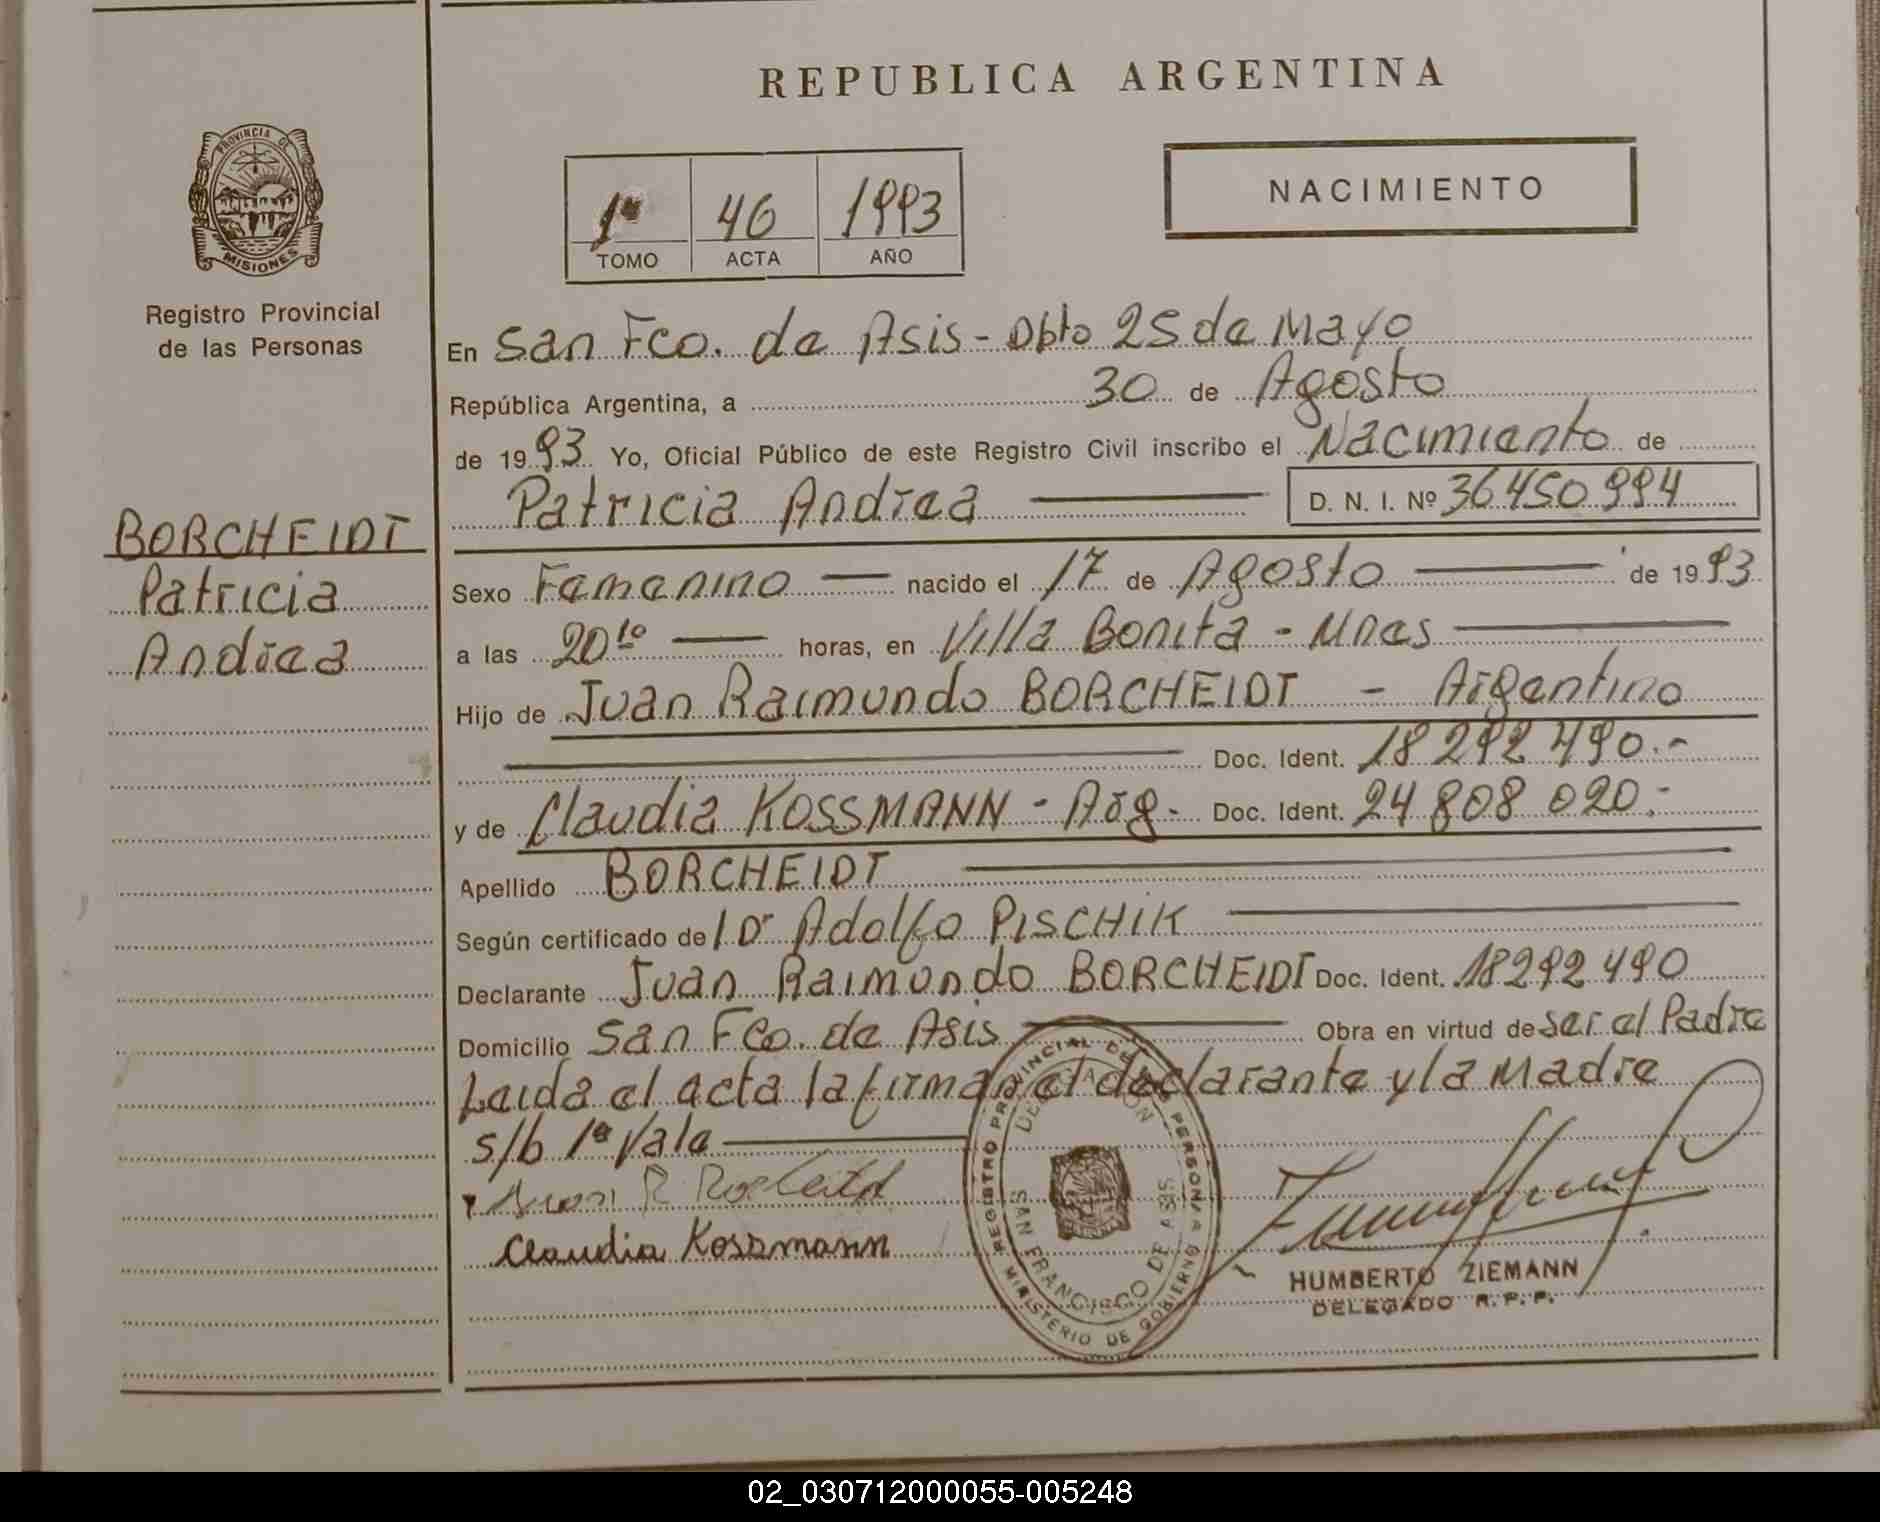 REPUBLICA ARGENTINA
PROVINCIA DE
MISIONES
Registro Provincial
de las Personas
1º 46 1993
TOMO ACTA AÑO
NACIMIENTO
En San Fco. de Asis - Dpto 25 de Mayo
República Argentina, a 30 de Agosto
de 1993 Yo, Oficial Público de este Registro Civil inscribo el Nacimiento de
Patricia Andrea D. N. I. Nº 36.450.994
BORCHEIDT
Patricia
Andrea
Sexo Femenino nacido el 17 de Agosto de 1993
a las 20 10 horas, en Villa Bonita - Mnes
Hijo de Juan Raimundo BORCHEIDT - Argentino
Doc. Ident. 18 292 490.-
y de Claudia KOSSMANN - Arg. Doc. Ident. 24 808 020.-
Apellido BORCHEIDT
Según certificado del Dr Adolfo PISCHIK
Declarante Juan Raimundo BORCHEIDT Doc. Ident. 18292490
Domicilio San Fco. de Asis Obra en virtud de ser el Padre
Leida el acta la firman el declarante y la Madre
s/b 1ª Vale
Juan R
Claudia Kossmann
REGISTRO PROVINCIAL DE PERSONAS
DELEGACION
SAN FRANCISCO DE ASIS
MINISTERIO DE GOBIERNO
HUMBERTO ZIEMANN
DELEGADO R.P.P.
02_030712000055-005248